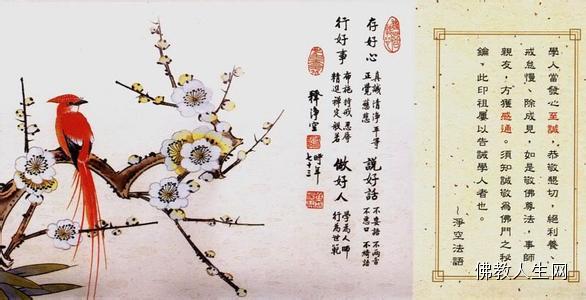 學人當發心至誠，恭敬懇切，絕利養、
戒怠慢、除成見，如是敬佛尊法，事師
親友，方獲感通。須知誠敬為佛門之秘
鑰，此印祖屢以告誡學人者也。
～淨空法語
存好心
真誠清淨平等
正覺慈悲
說好話
不妄語 不兩舌
不惡口 不綺語
行好事
布施持戒忍辱
精進禪定般若
做好人
學為人師
行為世範
釋淨空
時年
七十三
佛教人生网